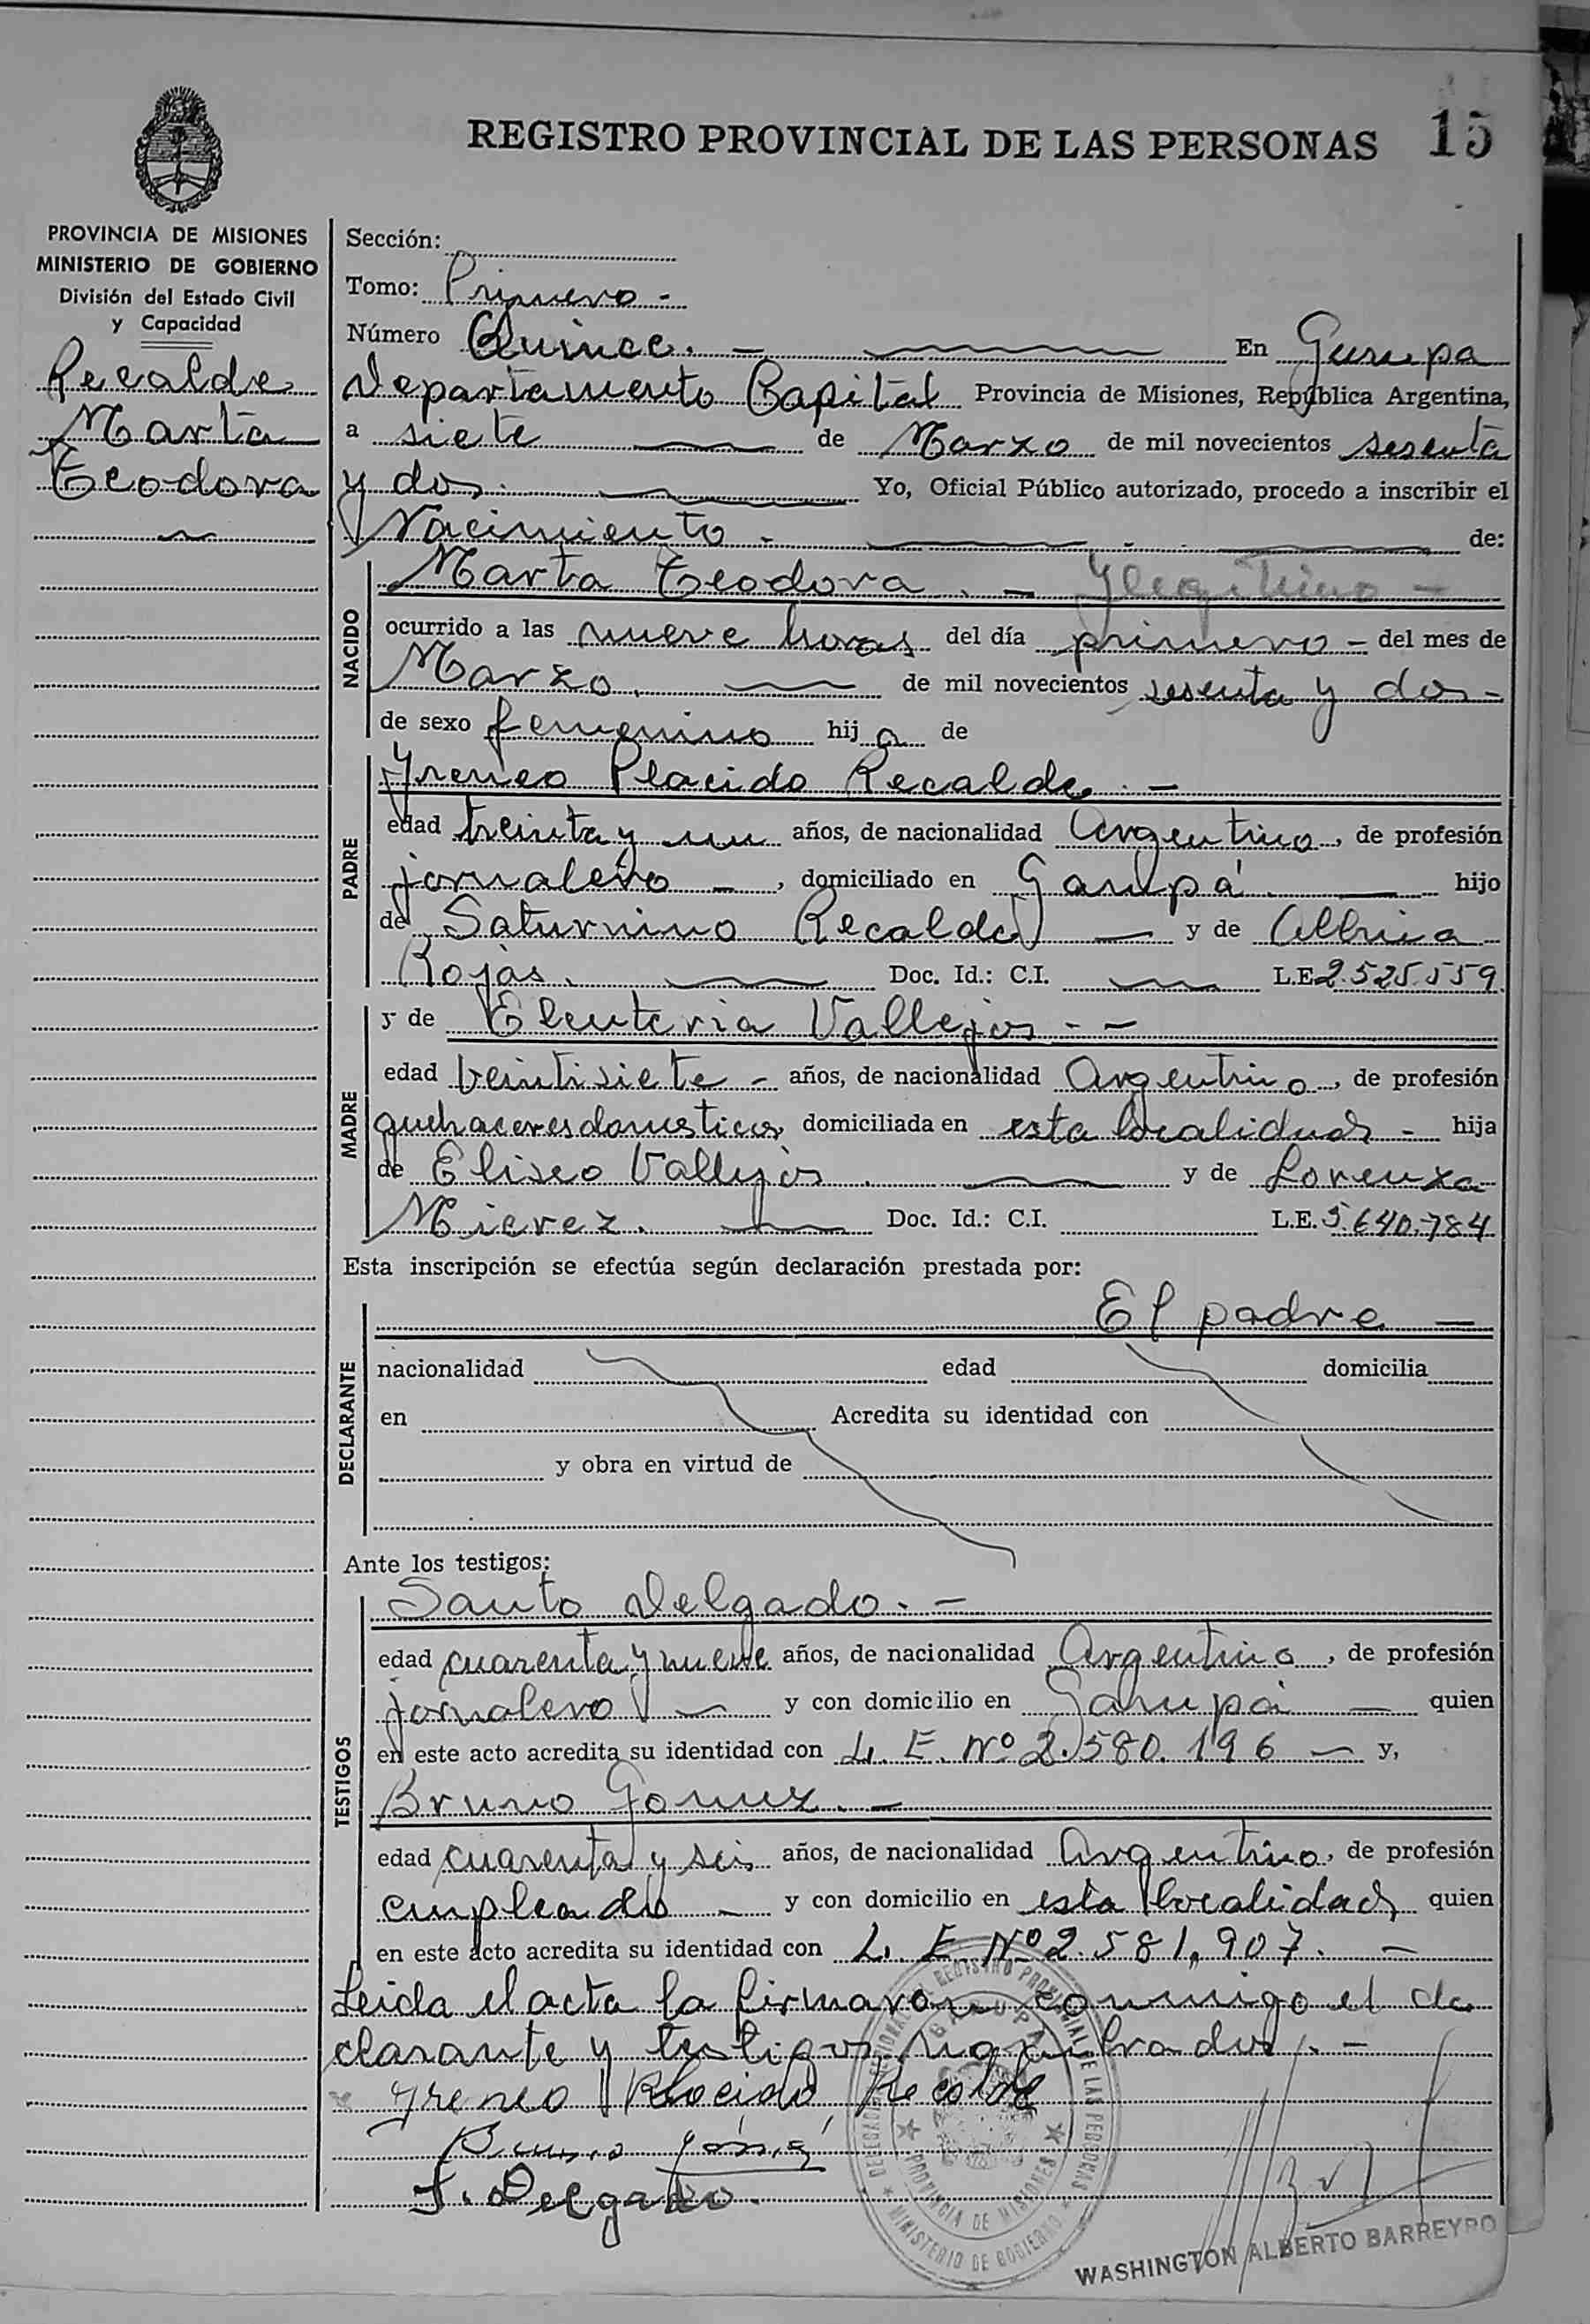 REGISTRO PROVINCIAL DE LAS PERSONAS 15
PROVINCIA DE MISIONES
MINISTERIO DE GOBIERNO
División del Estado Civil
y Capacidad
Recalde
Marta
Teodora
Sección:
Tomo: Primero -
Número Quince. - En Garupa
Departamento Capital Provincia de Misiones, República Argentina,
a siete de Marzo de mil novecientos sesenta
y dos. Yo, Oficial Público autorizado, procedo a inscribir el
Nacimiento - de:
NACIDO
Marta Teodora. - Ylegitimo -
ocurrido a las nueve horas del día primero - del mes de
Marzo. de mil novecientos sesenta y dos -
de sexo femenino hij a de
PADRE
Yreneo Placido Recalde. -
edad treinta y un años, de nacionalidad Argentino, de profesión
jornalero -, domiciliado en Garupá. hijo
de Saturnino Recalde y de Albina
Rojas. Doc. Id.: C.I. L.E 2.525.559
MADRE
y de Eleuteria Vallejos - -
edad veintisiete - años, de nacionalidad Argentino, de profesión
quehaceres domesticos domiciliada en esta localidad - hija
de Eliseo Vallejos. y de Lorenza
Mierez. Doc. Id.: C.I. L.E. 5.640.784
Esta inscripción se efectúa según declaración prestada por:
DECLARANTE
El padre -
nacionalidad edad domicilia
en Acredita su identidad con
y obra en virtud de
Ante los testigos:
TESTIGOS
Santo Delgado. -
edad cuarenta y nueve años, de nacionalidad Argentino, de profesión
jornalero y con domicilio en Garupá - quien
en este acto acredita su identidad con L. E. Nº 2.580.196 - y,
Bruno Gomez. -
edad cuarenta y seis años, de nacionalidad Argentino, de profesión
empleado - y con domicilio en esta localidad quien
en este acto acredita su identidad con L. E Nº 2.581.907. -
Leida el acta la firmaron conmigo el de
clarante y testigos nombrados. -
Yreneo Placido Recalde
Bruno Gómez
S. Delgado.
REGISTRO PROVINCIAL DE LAS PERSONAS
GARUPA
PROVINCIA DE MISIONES
MINISTERIO DE GOBIERNO
WASHINGTON ALBERTO BARREYRO